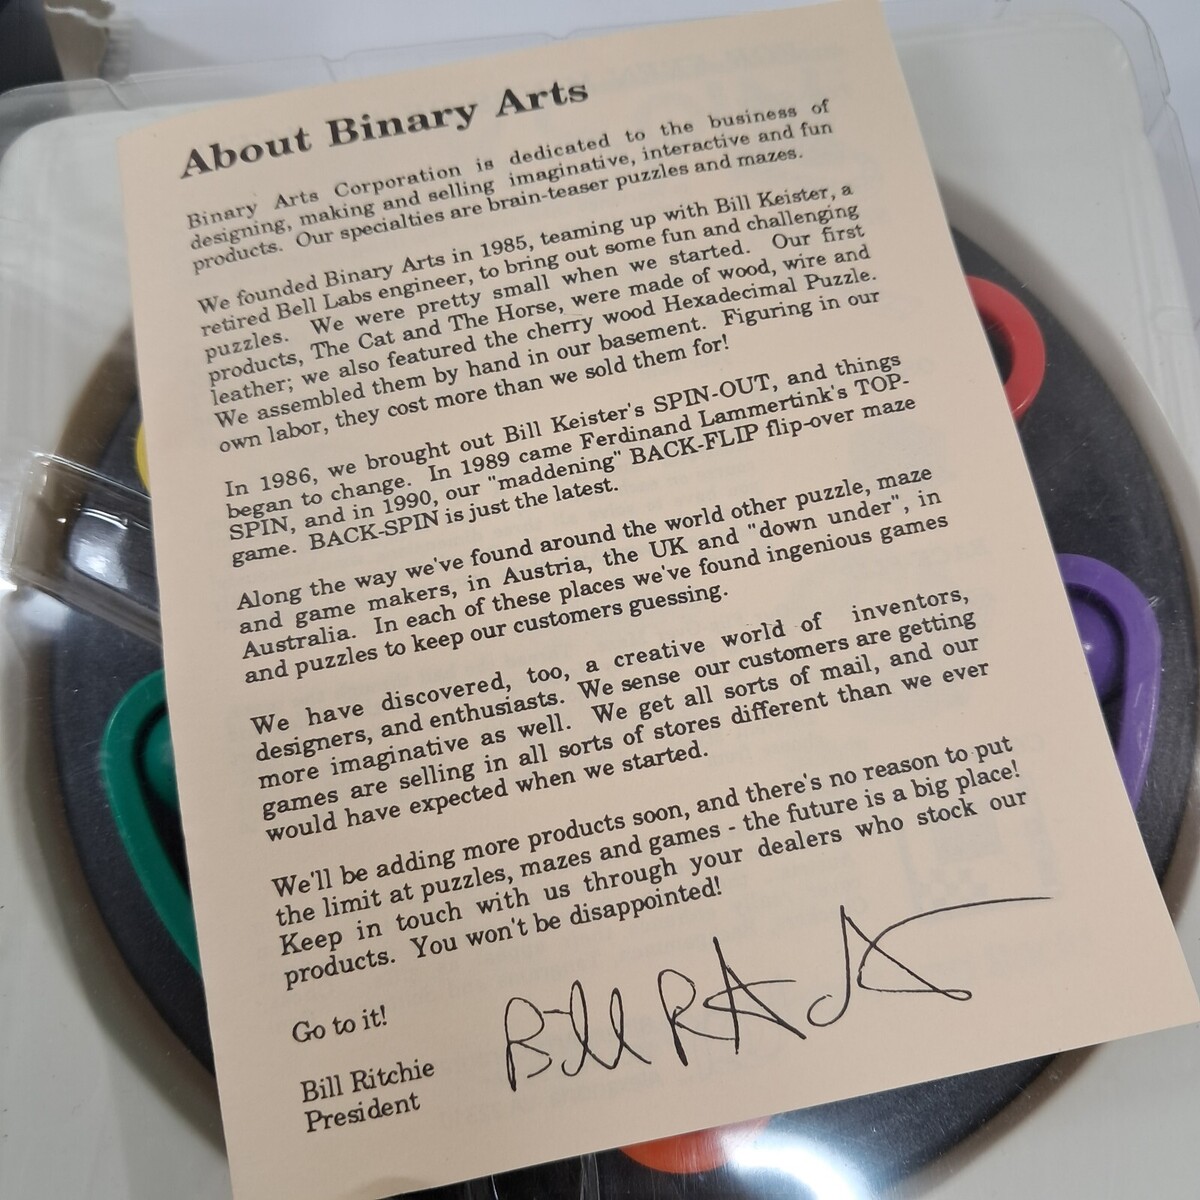 About Binary Arts
Binary Arts Corporation is dedicated to the business of
designing, making and selling imaginative, interactive and fun
products. Our specialties are brain-teaser puzzles and mazes.
We founded Binary Arts in 1985, teaming up with Bill Keister, a
retired Bell Labs engineer, to bring out some fun and challenging
puzzles. We were pretty small when we started. Our first
products, The Cat and The Horse, were made of wood, wire and
leather; we also featured the cherry wood Hexadecimal Puzzle.
We assembled them by hand in our basement. Figuring in our
own labor, they cost more than we sold them for!
In 1986, we brought out Bill Keister's SPIN-OUT, and things
began to change. In 1989 came Ferdinand Lammertink's TOP-
SPIN, and in 1990, our "maddening" BACK-FLIP flip-over maze
game. BACK-SPIN is just the latest.
Along the way we've found around the world other puzzle, maze
and game makers, in Austria, the UK and "down under", in
Australia. In each of these places we've found ingenious games
and puzzles to keep our customers guessing.
We have discovered, too, a creative world of inventors,
designers, and enthusiasts. We sense our customers are getting
more imaginative as well. We get all sorts of mail, and our
games are selling in all sorts of stores different than we ever
would have expected when we started.
We'll be adding more products soon, and there's no reason to put
the limit at puzzles, mazes and games - the future is a big place!
Keep in touch with us through your dealers who stock our
products. You won't be disappointed!
Go to it!
Bill Ritchie
President